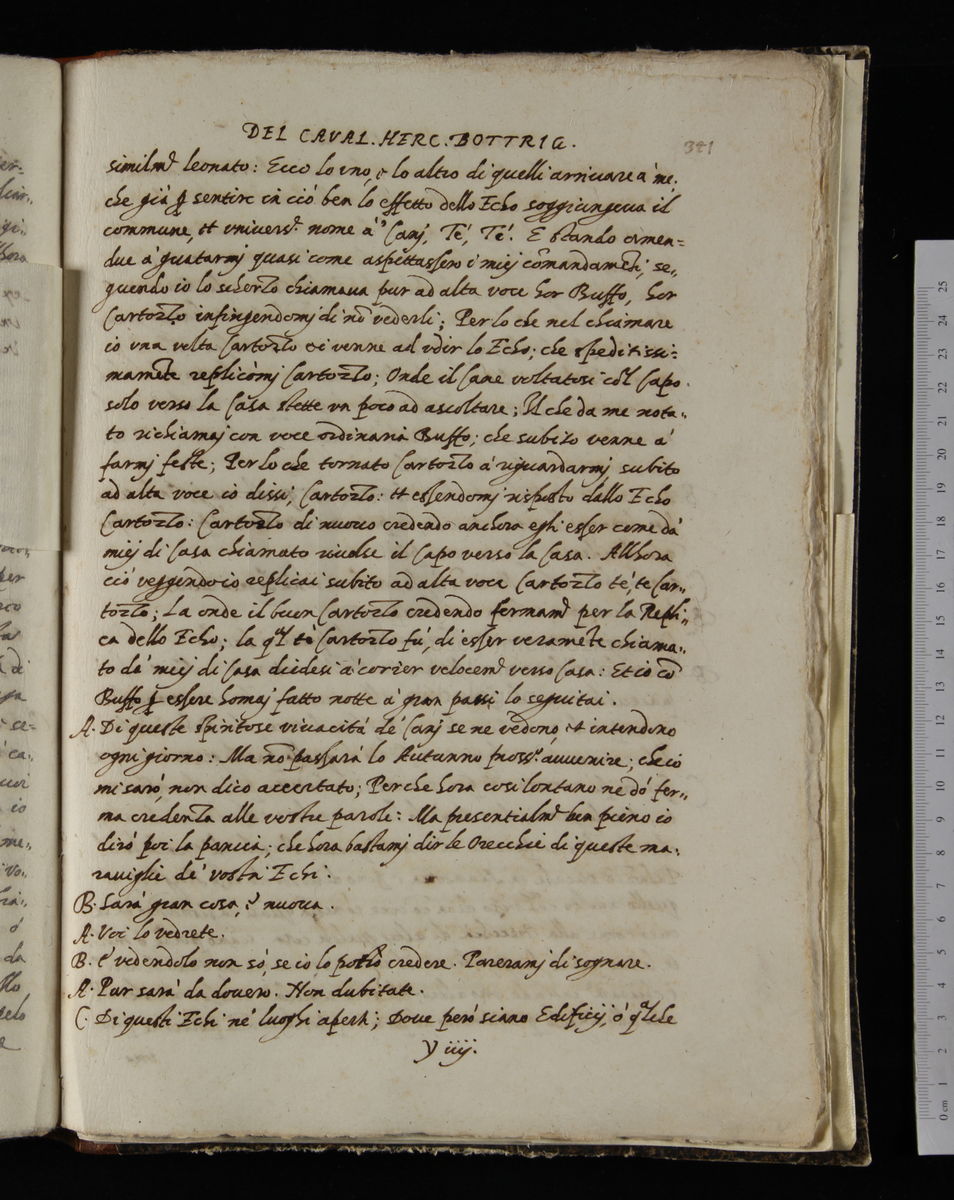 DEL CAVAL. HERC. BOTTRIG.
341
similmẽ leonato: Ecco lo uno, e lo altro di quelli arrivare a' me,
che già ꝑ sentire in ciò ben lo effetto dello Echo soggiungeva il
commune, et univers.º nome a' Canj, Te', Te'. E stando amen=
due a' guatarmj quasi come aspettassero i miej cõmandamẽti, se,,
guendo io lo scherzo chiamava pur ad alta voce hor Buffo, hor
Cartozzo infingendomj di nõ vederli; Per lo che nel chiamare
io una volta Cartozzo si venne ad udir lo Echo; che speditissi=
mamẽte replicòmj Cartozzo; Onde il Cane voltatosi col Capo
solo verso la Casa stette un poco ad ascoltare; Il che da me nota,,
to richiamaj con voce ordinaria Buffo; che subito venne a'
farmj feste; Per lo che tornato Cartozzo a' riguardarmj subito
ad alta voce io dissi, Cartozzo: et essendomj risposto dallo Echo
Cartozzo: Cartozzo di nuovo credendo anchora egli esser come da'
miej di Casa chiamato rivolse il Capo verso la Casa. Allhora
ciò veggendo io replicai subito ad alta voce Cartozzo te', te' Car,,
tozzo; La onde il buon Cartozzo credendo fermamẽ per la Repli,,
ca dello Echo; la qͣl te' Cartozzo fù, di esser veramẽte chiama,,
to da' miej di Casa diedesi a' correr velocemẽ verso Casa: Et io cõ
Buffo ꝑ essere homaj fatto notte a' gran passi lo seguitai.
A. Di queste spiritose vivacità de' Canj se ne vedono, et intendono
ogni giorno: Ma nõ passarà lo Autunno pross.º avvenire; che io
mi sarò, non dico accertato; Perche hora così lontano ne dò fer,,
ma credenza alle vostre parole: Ma presentialmẽ ben pieno io
dirò poi la pancia; che hora bastamj dir le Orecchie di queste ma,,
raviglie de' vostri Echi.
B. Sarà gran cosa, e' nuova.
A. Voi lo vedrete.
B. e' vedendolo non sò, se io lo potrò credere. Pareramj di sognare.
A. Pur sarà da dovero. Non dubitate.
C. Di questi Echi ne' luoghi aperti; Dove però siano Edificij, ò qͣlche
Y iiij.